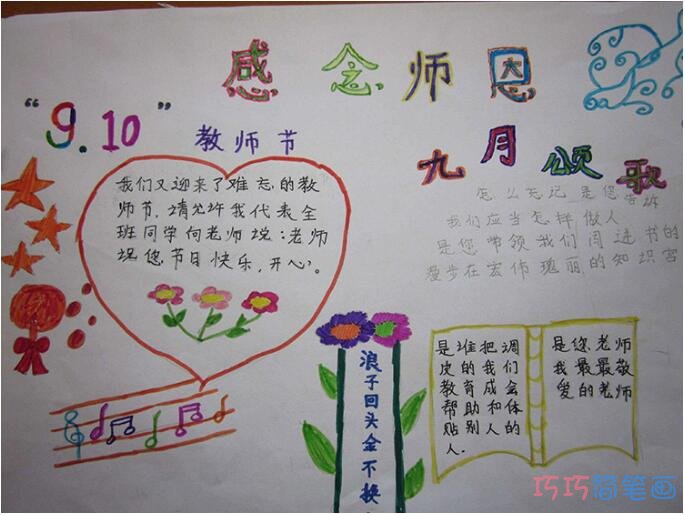 感念师恩
“9.10”
教师节
九月颂歌
我们又迎来了难忘的教
师节,请允许我代表全
班同学向老师说:老师
祝您节日快乐,开心。
怎么忘记 是您告诉
我们应当怎样做人
是您带领我们闯进书的
漫步在宏伟瑰丽的知识宫
浪子回头金不换
是谁把调
皮的我们
教育成会
帮助和体
贴别人的
人.
是您老师
我最最敬
爱的老师
巧巧简笔画